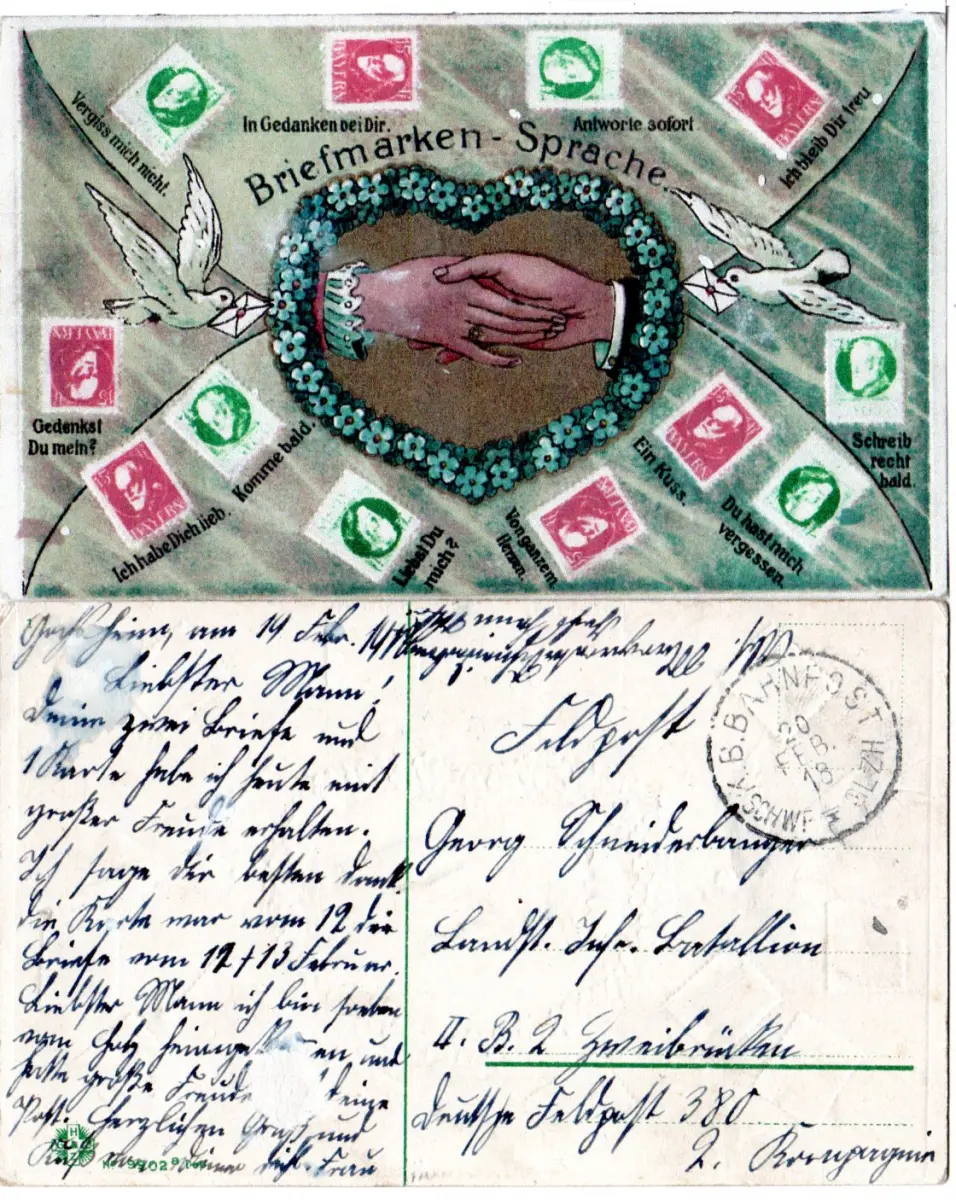 Vergiss mich nicht.
In Gedanken bei Dir.
Antworte sofort
Ich bleib Dir treu
Briefmarken-Sprache.
15 BAYERN
15 BAYERN
BAYERN
Gedenkst
Du mein?
Komme bald.
Ein Kuss.
Schreib
recht
bald.
15 BAYERN
15 BAYERN
15 BAYERN
Ich habe Dich lieb.
Liebst Du
mich?
Von ganzem
Herzen.
Du hast mich
vergessen.
Gochsheim, am 19 Febr. 191
Liebster Mann!
Deine zwei Briefe und
1 Karte habe ich heute mit
großer Freude erhalten.
Ich sage dir besten Dank
die Karte war vom 12 die
Briefe vom 12 + 13 Februar.
Liebster Mann ich bin soeben
vom Holz heimge en und
hatte große Freude deine
Post. Herzlichen Gruß und
Kuß von deiner dich. Frau
K.B. BAHNPOST
20
FEB
18
Feldpost
Georg Schneiderbanger
Landst. Inf. Batallion
II. B. 2 Zweibrücken
Deutsche Feldpost 380
2. Kompagnie